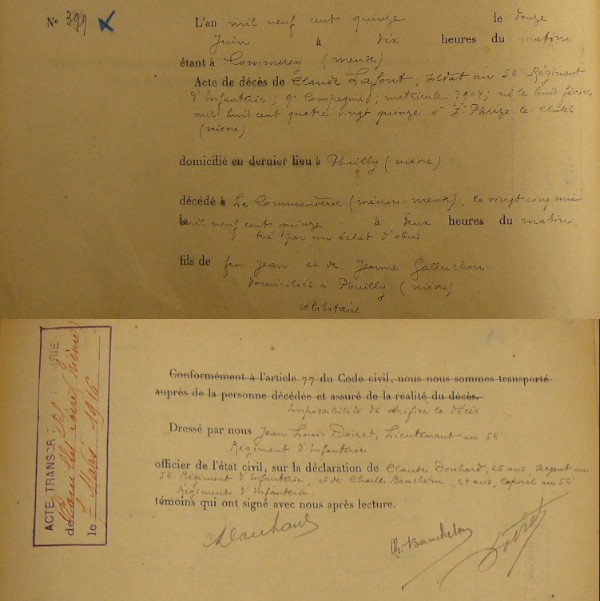 No 399 L'an mil neuf cent quinze le douze
Juin à dix heures du matin
étant à Commercy (meuse)
Acte de décès de Claude Lafont, soldat au 55 Régiment
d'Infanterie; 9e Compagnie; matricule 7904; né le huit février
mil huit cent quatre vingt quinze à St Parize le Châtel
(nièvre)
domicilié en dernier lieu à Pouilly (nièvre)
décédé à La (meux), le vingt cinq mai
la mil neuf cent quinze à deux heures du matin
tué par un éclat d'obus
fils de feu Jean et de Jeanne Galluchon
domiciliés à Pouilly (nièvre)
Militaire
Conformément à l'article 77 du Code civil, nous nous sommes transporté
auprès de la personne décédée et assuré de la réalité du décès.
Impossibilité de vérifier le décès
Dressé par nous Jean Louis Doiret, Lieutenant au 55
Régiment d'Infanterie
officier de l'état civil, sur la déclaration de Claude Douhard, 28 ans, sergent au
55 Régiment d'Infanterie, et de Charles Baucheton, ans, Caporal au 55
Régiment d'Infanterie.
témoins qui ont signé avec nous après lecture.
Ch. Baucheton
ACTE TRANSCRIT
de Pouilly Loire (Nièvre)
le 1916